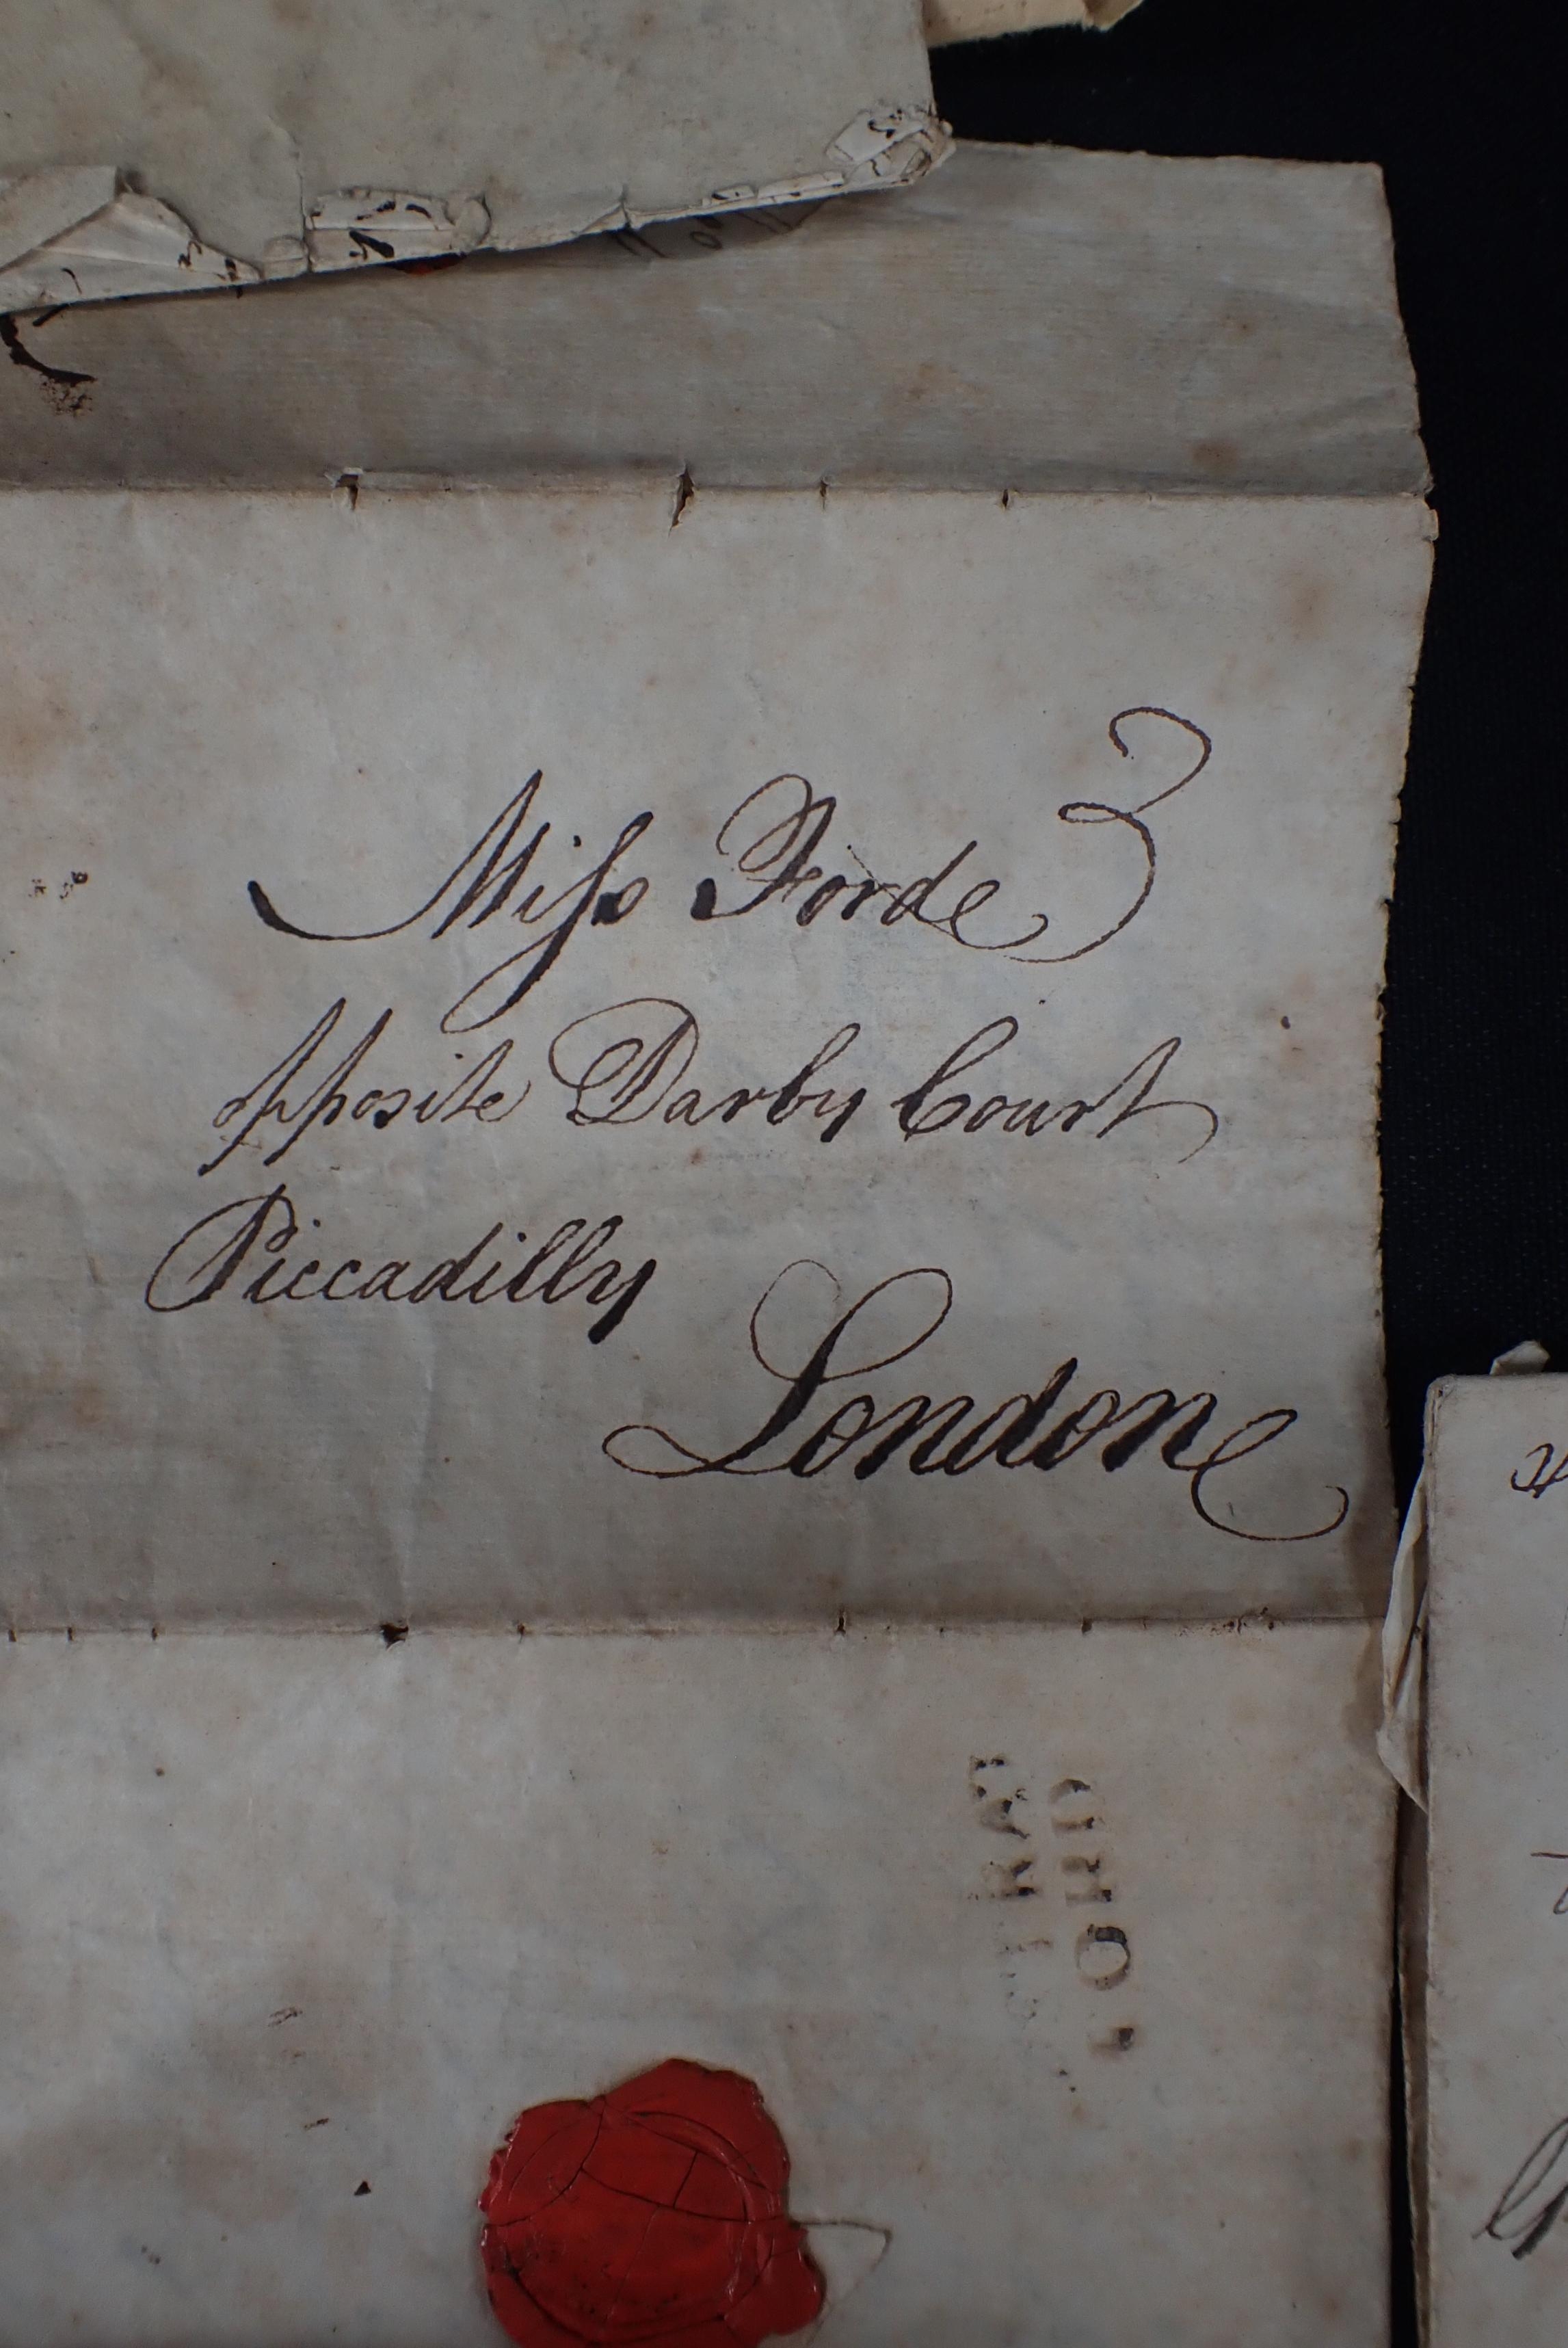 Miſs Forde 3
opposite Darby Court
Piccadilly
London